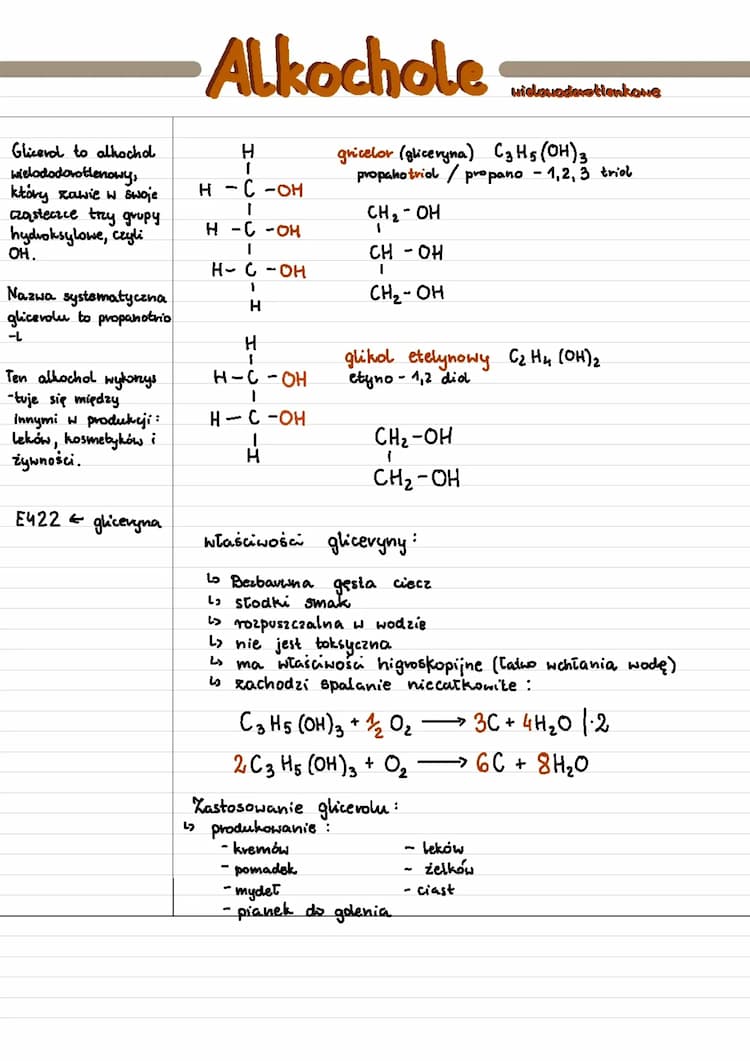 Alkochole
wielowodorotlenkowe
Glicerol to alkochol
wielododorotlenowy,
który zawie w swoje
cząsteczce trzy grupy
hydroksylowe, czyli
OH.
Nazwa systematyczna
glicerolu to propanotrio
-l
Ten alkochol wykorzys
-tuje się między
innymi w produkcji:
leków, kosmetyków i
żywności.
E422 ← gliceryna
H
H - C - OH
H - C - OH
H - C - OH
H
gricelor (gliceryna) C3H5(OH)3
propanotriol / propano - 1,2,3 triol
CH2 - OH
CH - OH
CH2 - OH
H
H - C - OH
H - C - OH
H
glikol etelynowy C2H4(OH)2
etyno - 1,2 diol
CH2 - OH
CH2 - OH
właściwości gliceryny:
↳ Bezbarwna gęsta ciecz
↳ słodki smak
↳ rozpuszczalna w wodzie
↳ nie jest toksyczna
↳ ma właściwości higroskopijne (łatwo wchłania wodę)
↳ zachodzi spalanie niecałkowite:
C3H5(OH)3 + ½ O2 → 3C + 4H2O |·2
2C3H5(OH)3 + O2 → 6C + 8H2O
Zastosowanie glicerolu:
↳ produkowanie:
- kremów
- pomadek
- mydeł
- pianek do golenia
- leków
- żelków
- ciast